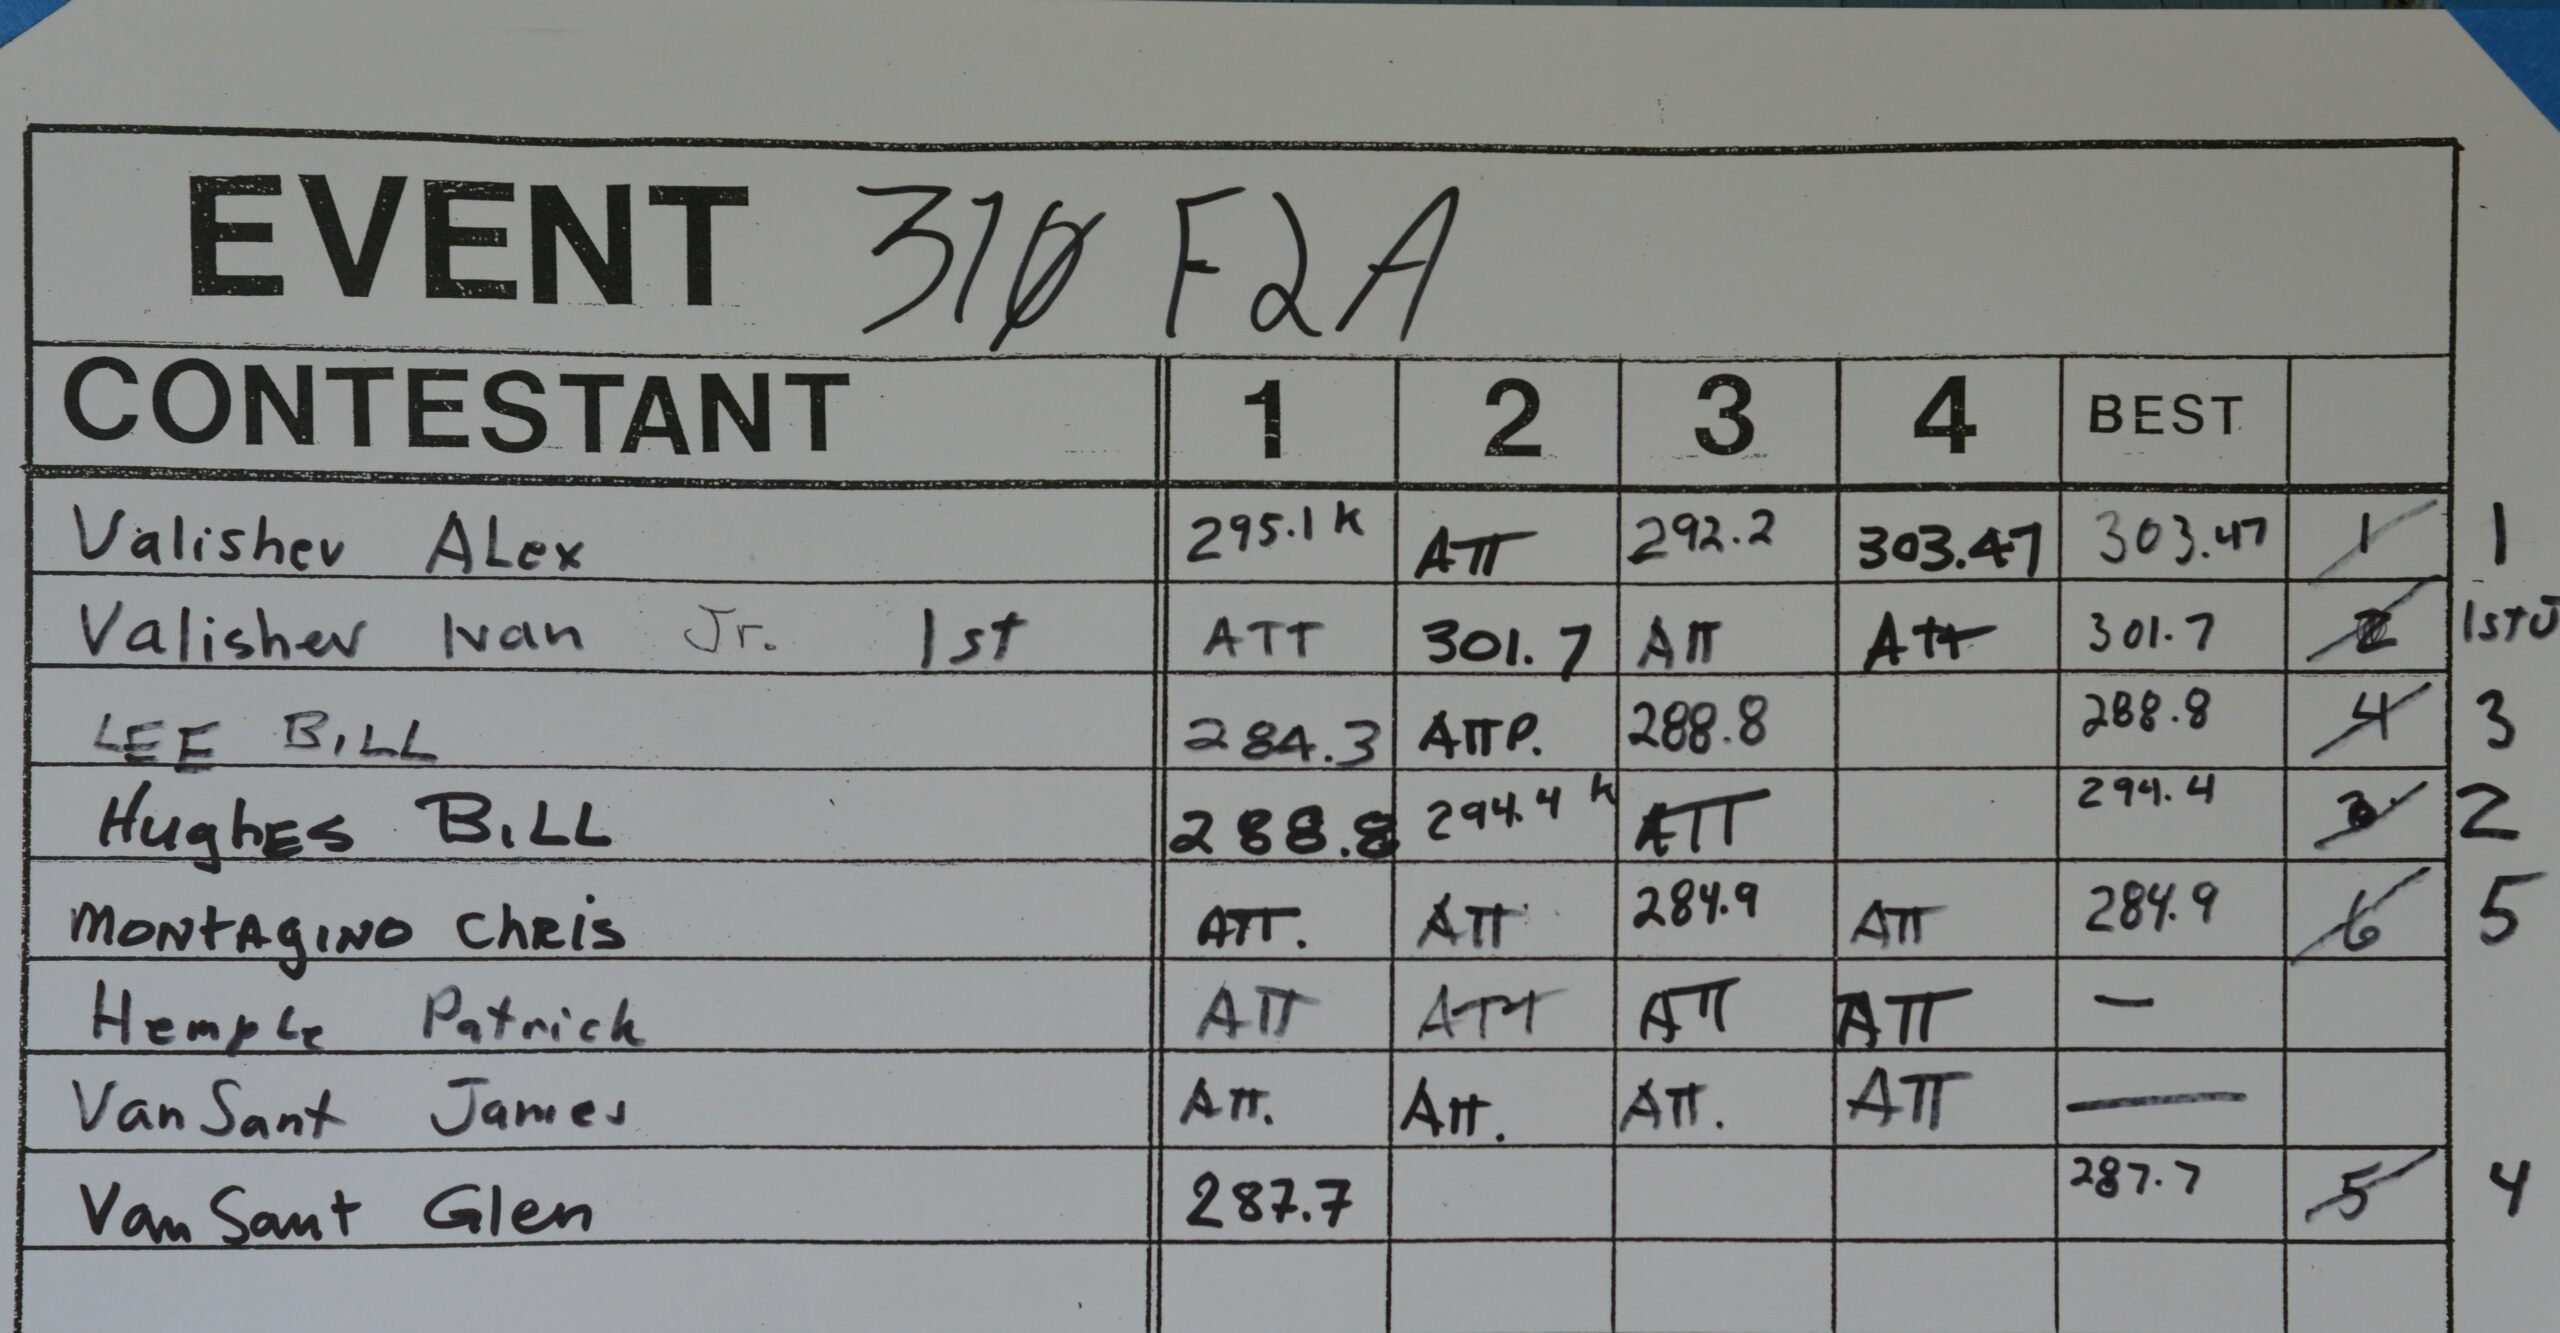 EVENT 310 F2A
CONTESTANT 1 2 3 4 BEST
Valishev ALex 295.1 K ATT 292.2 303.47 303.47 1 1
Valishev Ivan Jr. 1st ATT 301.7 ATT ATT 301.7 2 1st J
LEE BILL 284.3 ATTP. 288.8 288.8 4 3
HughES BILL 288.8 294.4 K ATT 294.4 3 2
MONtAgINO ChRis ATT. ATT 284.9 ATT 284.9 6 5
HempLe Patrick ATT ATT ATT ATT —
VanSant James ATT. ATT. ATT. ATT —
VanSant Glen 287.7 287.7 5 4